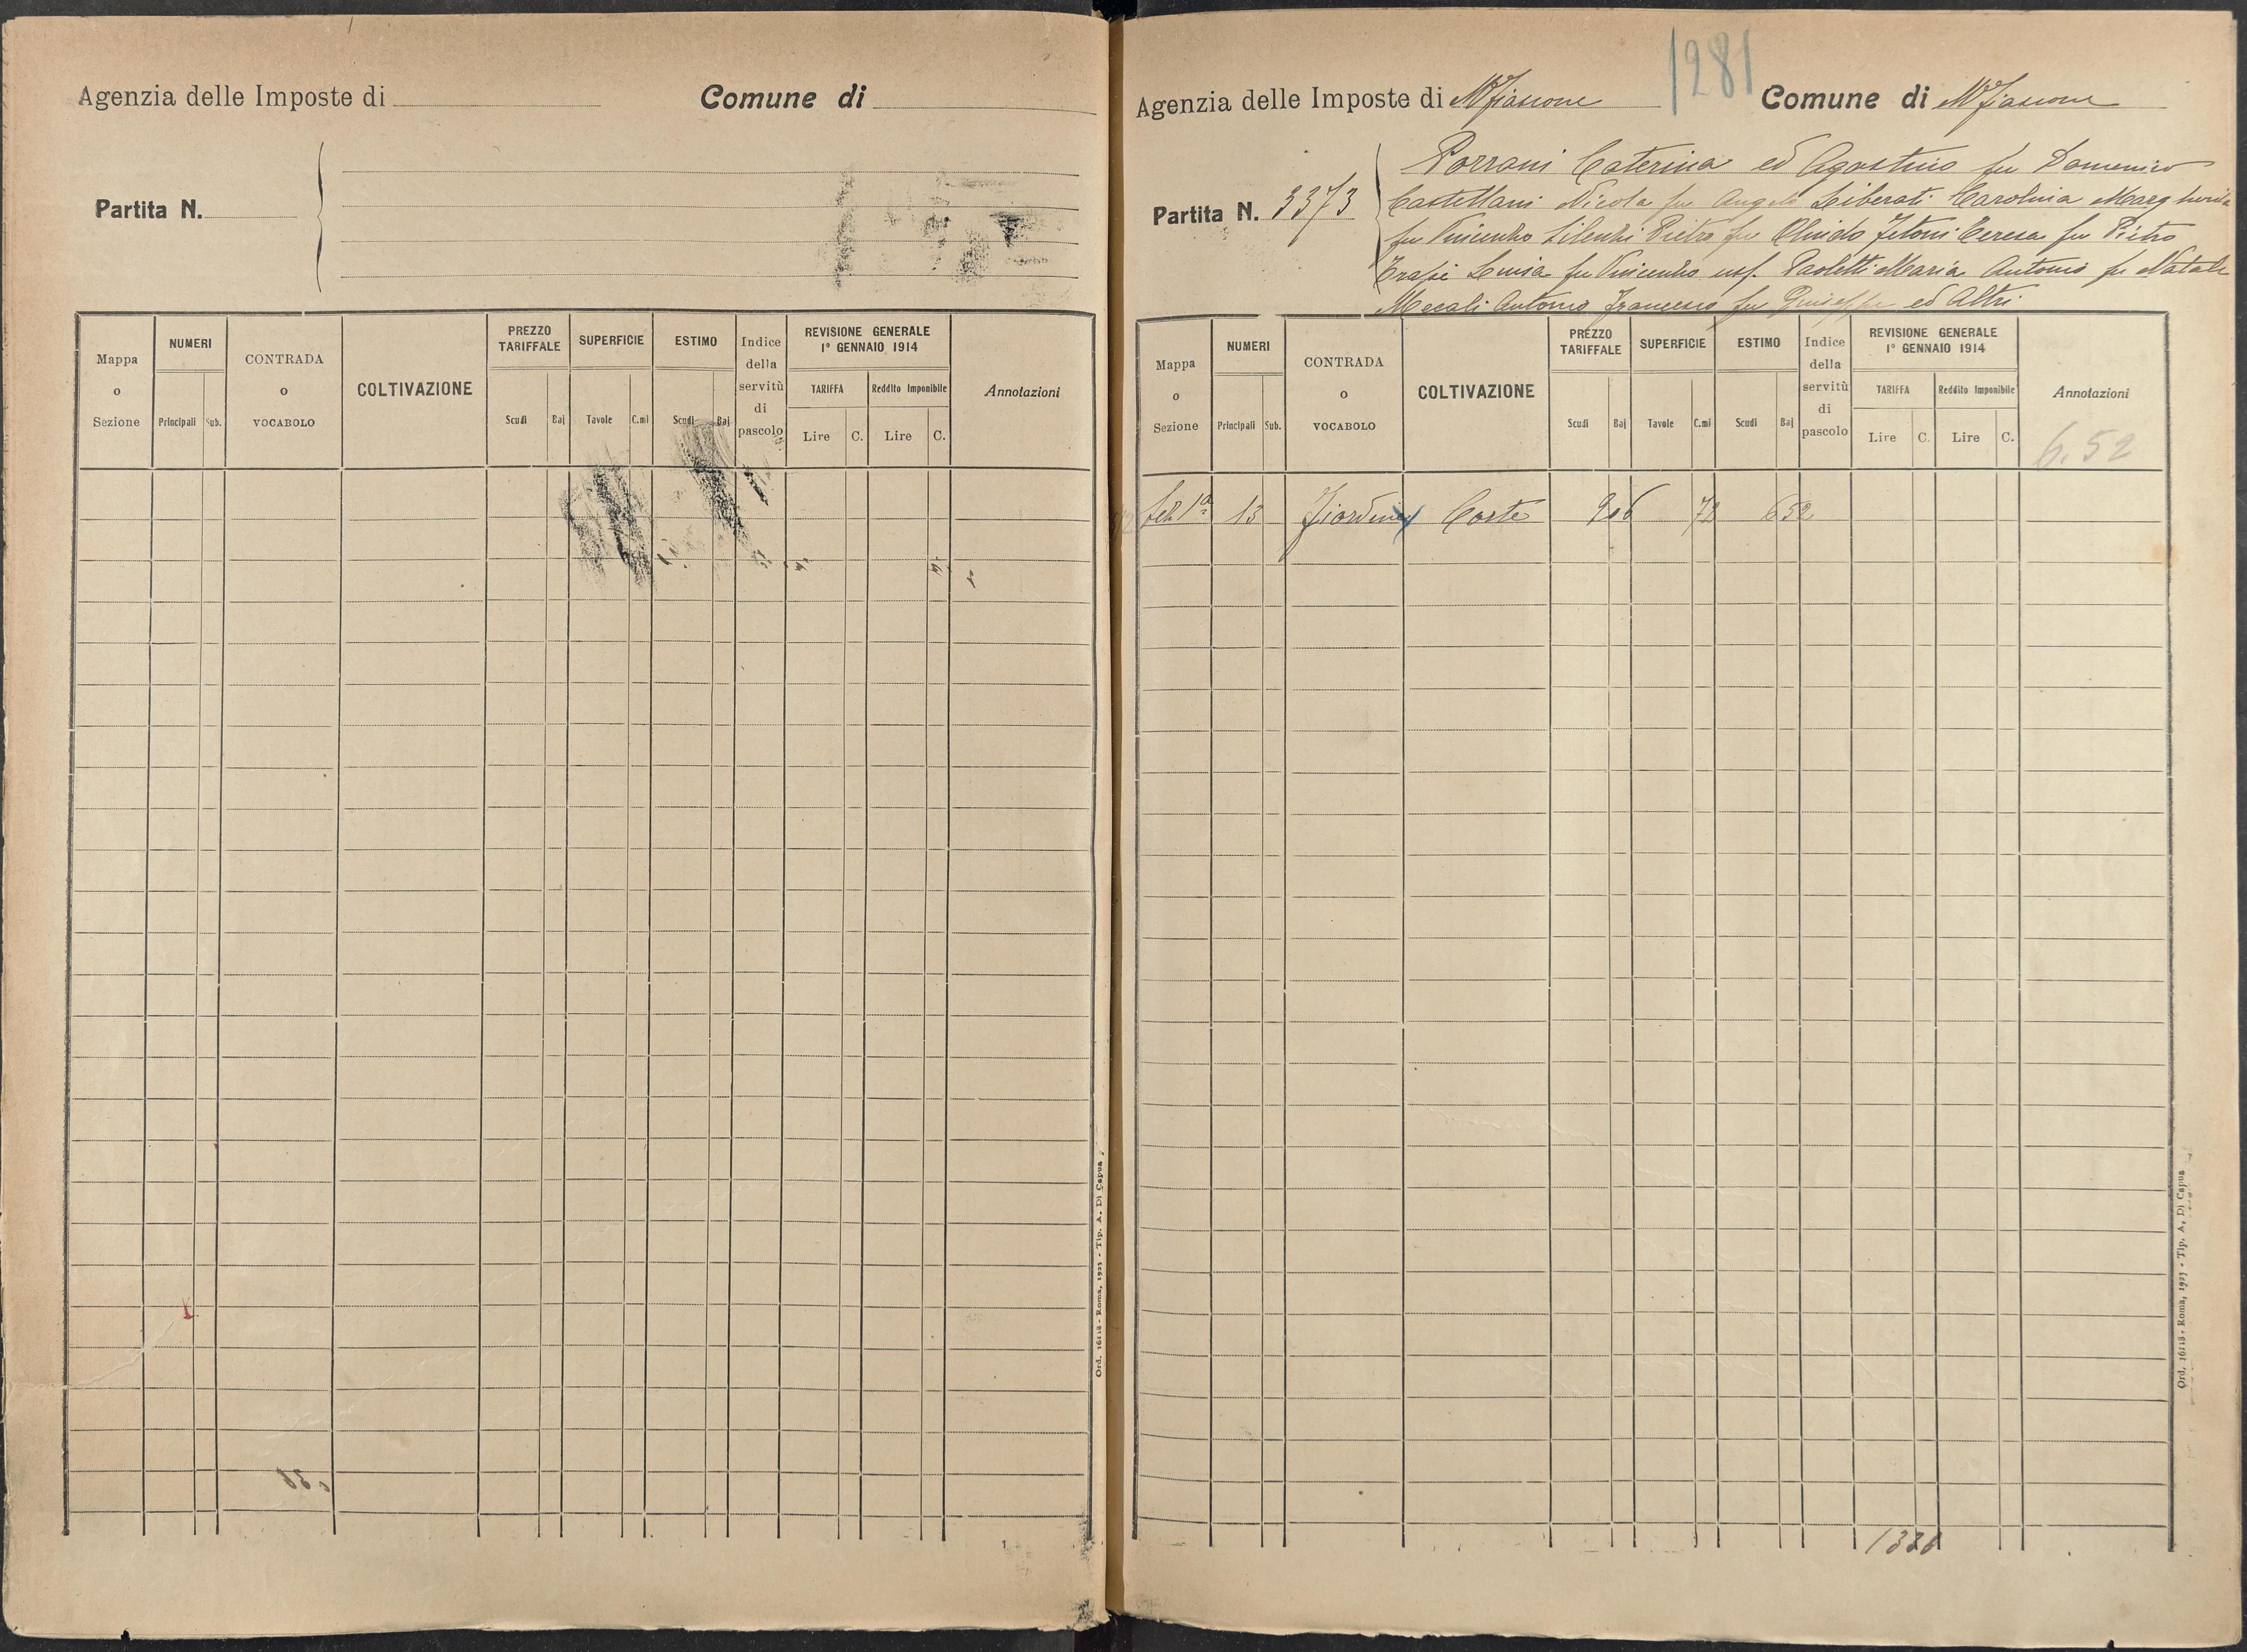 Agenzia delle Imposte di
Comune di
Partita N.
Mappa o Sezione
NUMERI
Principali
Sub.
CONTRADA o VOCABOLO
COLTIVAZIONE
PREZZO TARIFFALE
Scudi
Baj
SUPERFICIE
Tavole
C.mi
ESTIMO
Scudi
Baj
Indice della servitù di pascolo
REVISIONE GENERALE
1º GENNAIO 1914
TARIFFA
Lire
C.
Reddito Imponibile
Lire
C.
Annotazioni
Ord. 16118 - Roma, 1923 - Tip. A. Di Capua
1281
Agenzia delle Imposte di Mfiascone
Comune di Mfiascone
Partita N. 3373
Porrani Caterina ed Agostino fu Domenico
Castellani Nicola fu Angelo Liberati Carolina Margherita
fu Vincenzo Silenzi Pietro fu Teresa fu Pietro
Luisa fu Vincenzo usf. Paoletti Maria Antonio fu Natale
Mecali Antonio Francesco fu Giuseppe ed Altri
Mappa o Sezione
NUMERI
Principali
Sub.
CONTRADA o VOCABOLO
COLTIVAZIONE
PREZZO TARIFFALE
Scudi
Baj
SUPERFICIE
Tavole
C.mi
ESTIMO
Scudi
Baj
Indice della servitù di pascolo
REVISIONE GENERALE
1º GENNAIO 1914
TARIFFA
Lire
C.
Reddito Imponibile
Lire
C.
Annotazioni
6.52
Sez 1ª 13 Giardino Corte 906 72 652
Ord. 16118 - Roma, 1923 - Tip. A. Di Capua